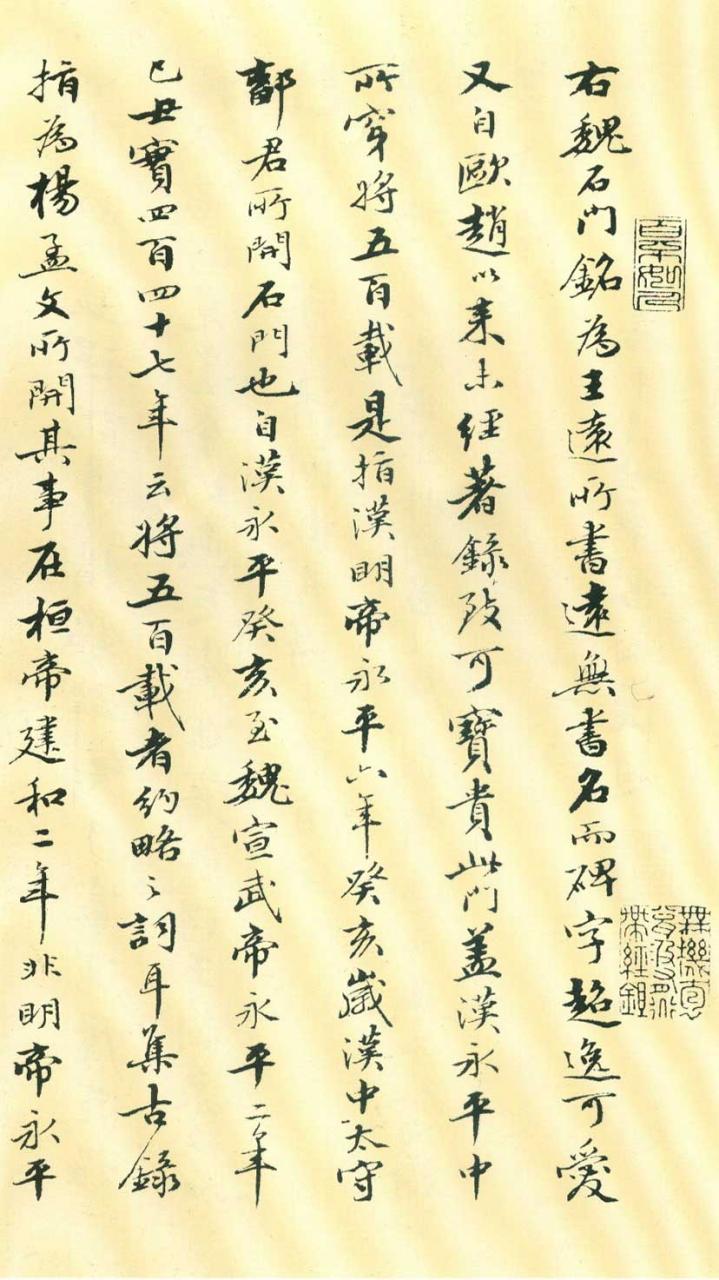 右魏石門銘為王遠所書遠無書名而碑字超逸可愛
又自歐趙以來未經著錄致可寶貴此門蓋漢永平中
所穿將五百載是指漢明帝永平六年癸亥歲漢中太守
鄐君所開石門也自漢永平癸亥至魏宣武帝永平二年
己丑實四百四十七年云將五百載者約略之詞耳集古錄
指為楊孟文所開其事在桓帝建和二年非明帝永平